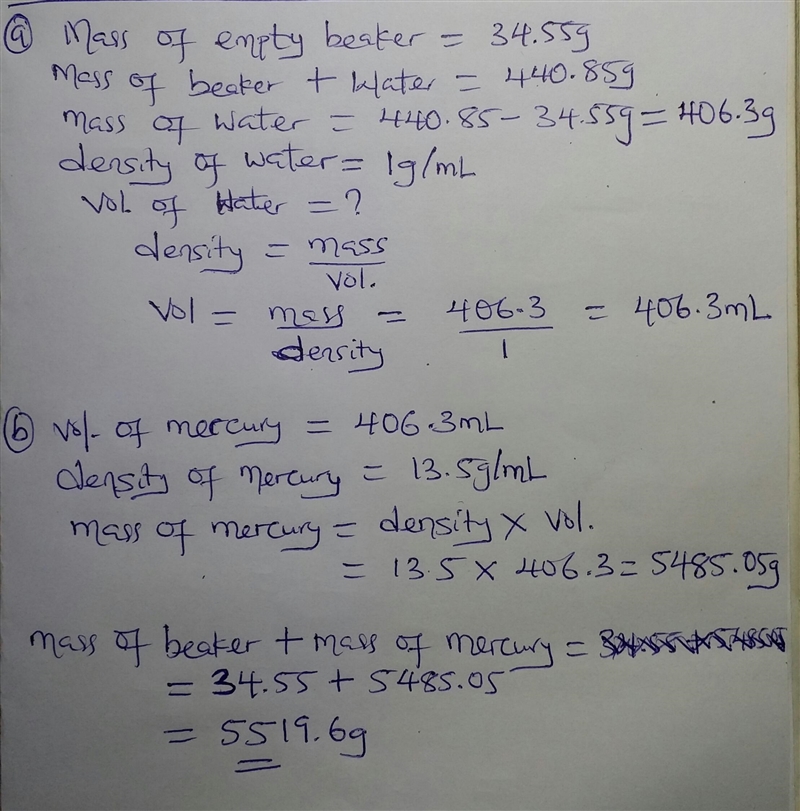 (a) Mass of empty beaker = 34.55g
Mass of beaker + Water = 440.85g
mass of Water = 440.85 - 34.55g = 406.3g
density of water = 1g/mL
Vol. of Water = ?
density = mass
Vol.
Vol = mass = 406.3 = 406.3mL
density 1
(b) vol. of mercury = 406.3mL
density of mercury = 13.5g/mL
mass of mercury = density × Vol.
= 13.5 × 406.3 = 5485.05g
mass of beaker + mass of mercury =
= 34.55 + 5485.05
= 5519.6g